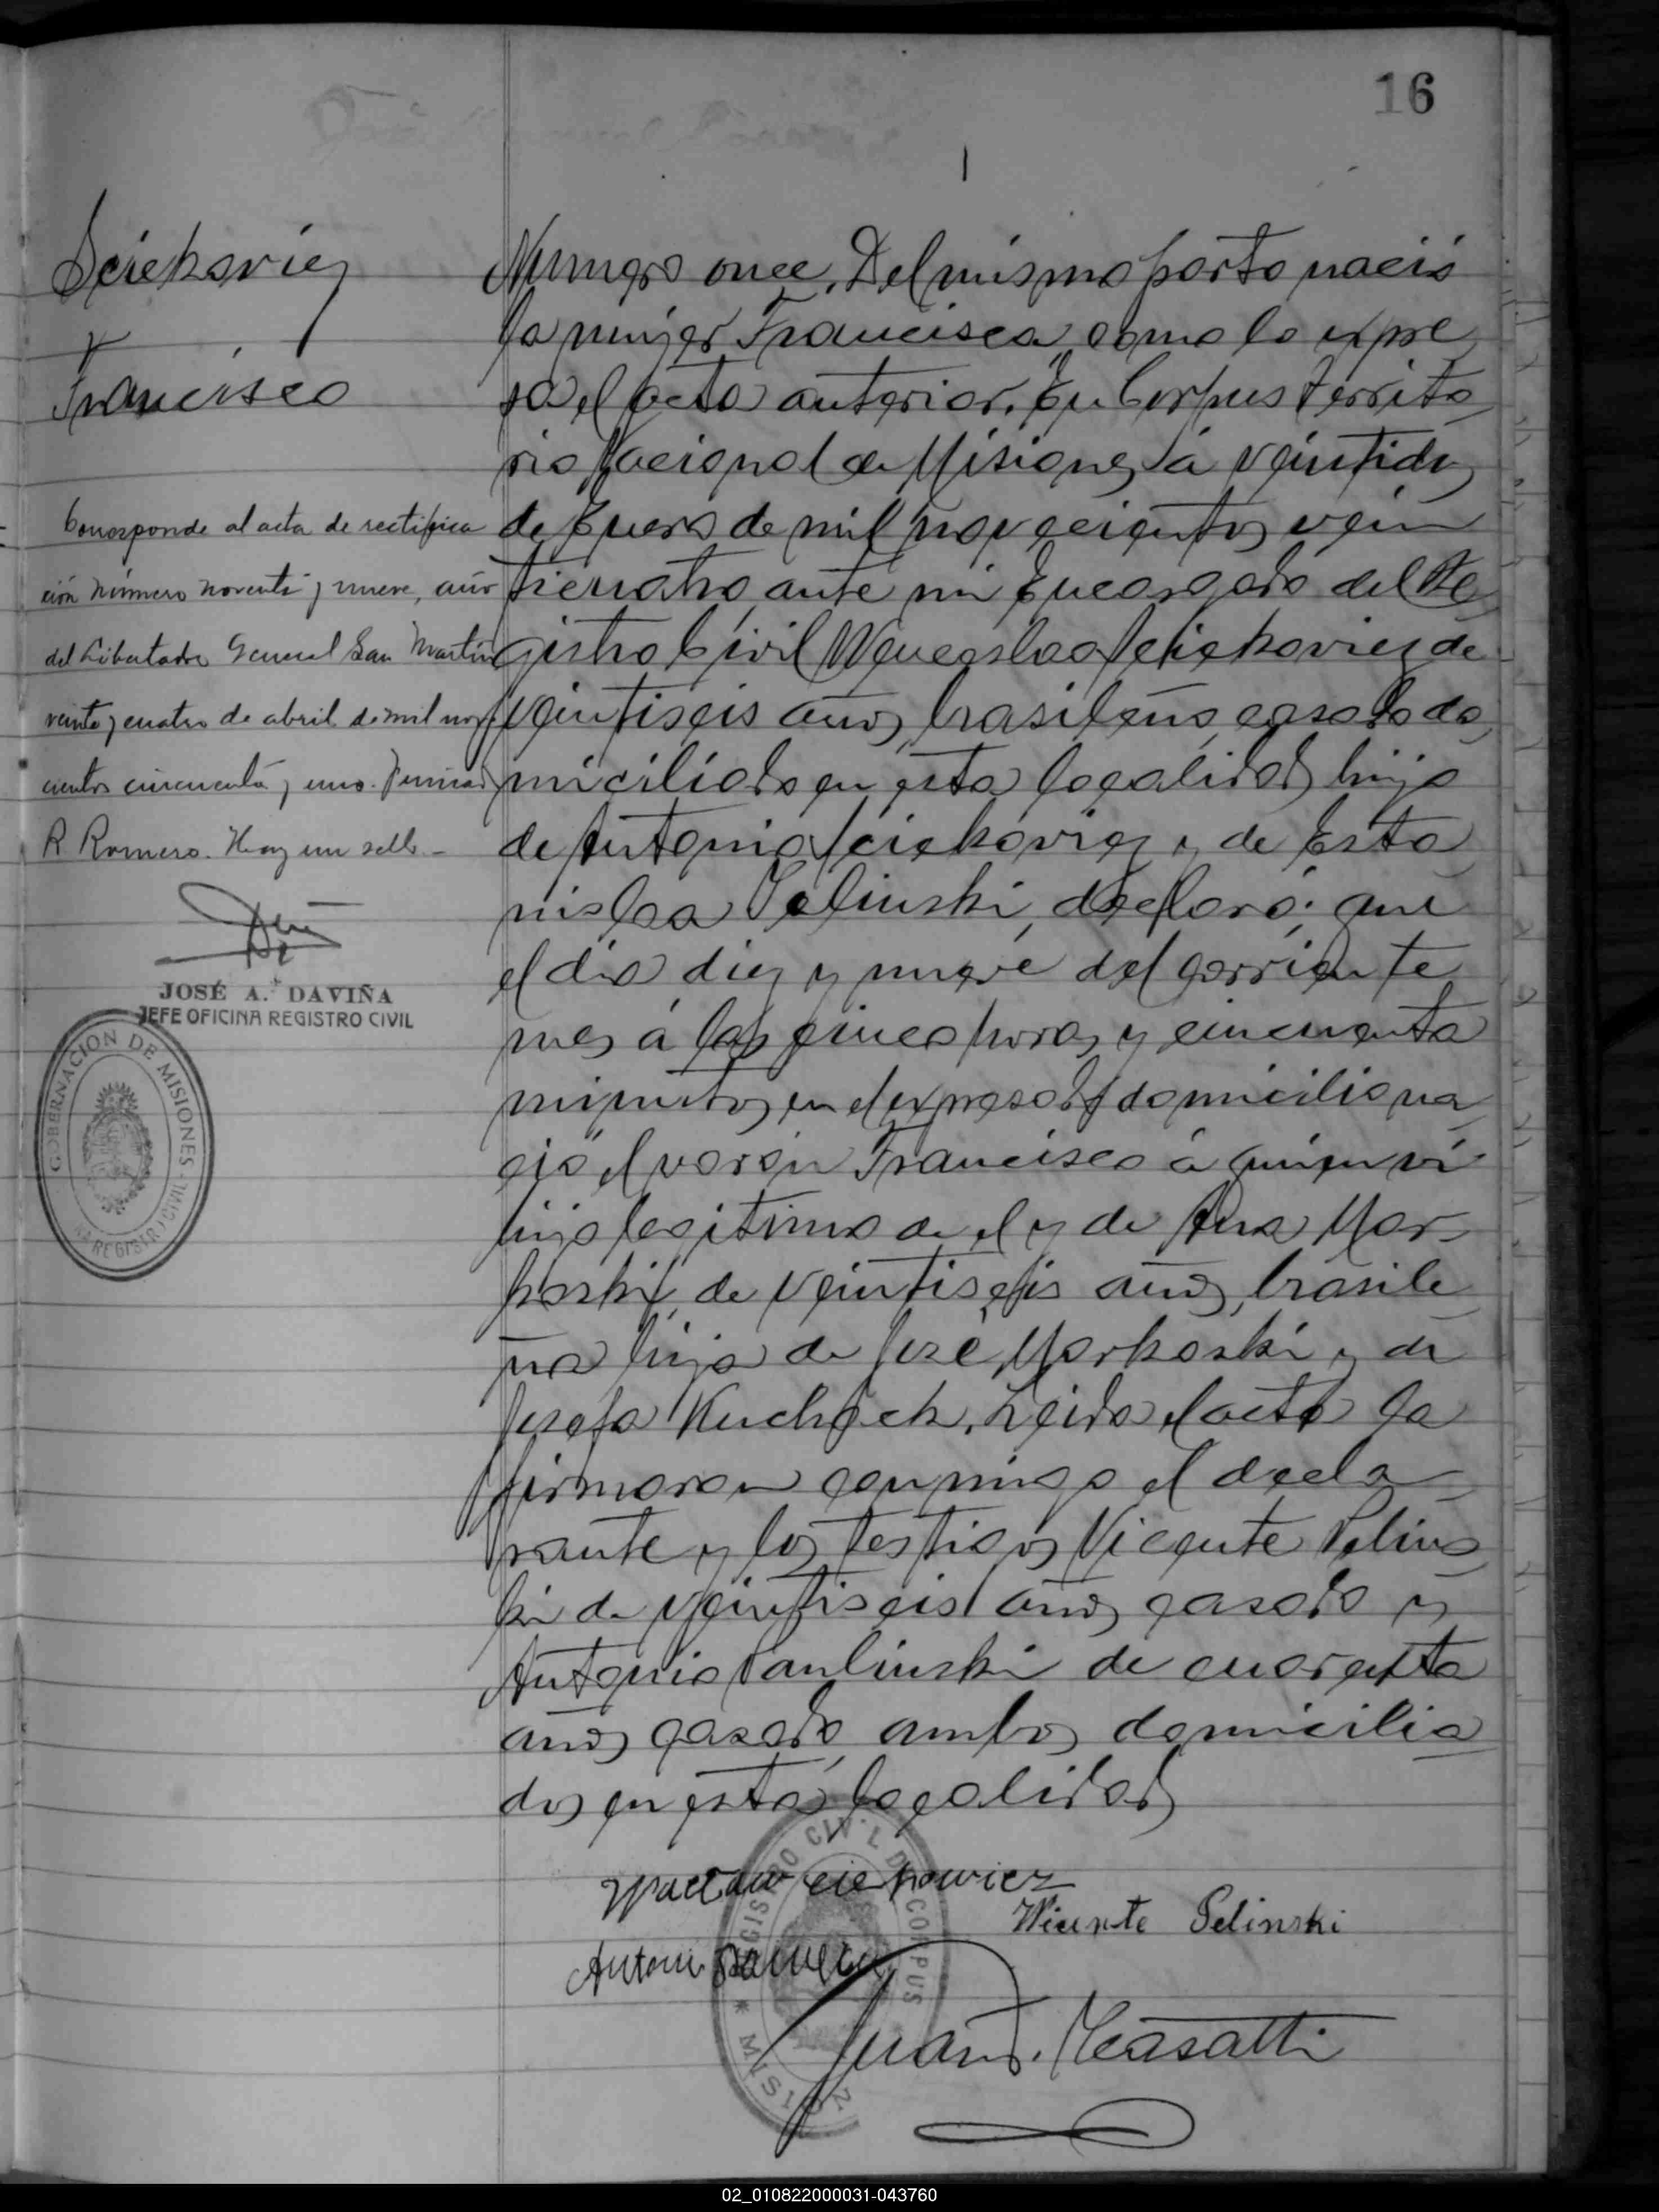 16
Sciekoviez
Francisco
Numero once. Del mismo parto nació
la mujer Francisca como lo expre
sa el acta anterior. En Corpus territo
rio Nacional de Misiones á veintidos
de Enero de mil novecientos vein
ticuatro, ante mi Encargado del Re
gistro Civil Wenceslao Sciekoviez de
veintiseis años, brasileño, casado do
miciliado en esta localidad, hijo
de Antonio Sciekoviez y de Esta
nislaa Pelinski, declaró: que
el dia diez y nueve del corriente
mes á las cinco horas y cincuenta
minutos en el expresado domicilio na
ció el varón Francisco á quien ví
hijo legitimo de el y de Ana Mar
koski, de veintiseis años, brasile
ña hija de José Markoski y de
Josefa Kuchjek. Leida el acta la
firmaron conmigo el decla
rante y los testigos Vicente Pelins
ki de veintiseis años casado y
Antonio Paulinski de cuarenta
años casado, ambos domicilia
dos en esta localidad
Corresponde al acta de rectifica
ción número noventa y nueve, año
del Libertador General San Martín
veinte y cuatro de abril de mil nove
cientos cincuenta y uno. Firmado
R. Romero. Hay un sello -
JOSÉ A. DAVIÑA
JEFE OFICINA REGISTRO CIVIL
GOBERNACIÓN DE MISIONES
REGISTRO CIVIL
Wacław Ciekowicz
Wicente Pelinski
Antoni
REGISTRO CIVIL DE CORPUS
* MISIONES
Juan J. Casatti
02_010822000031-043760